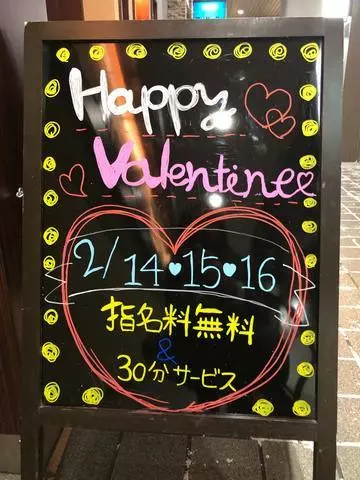 Happy
Valentine
2/14・15・16
指名料無料
&
30分サービス